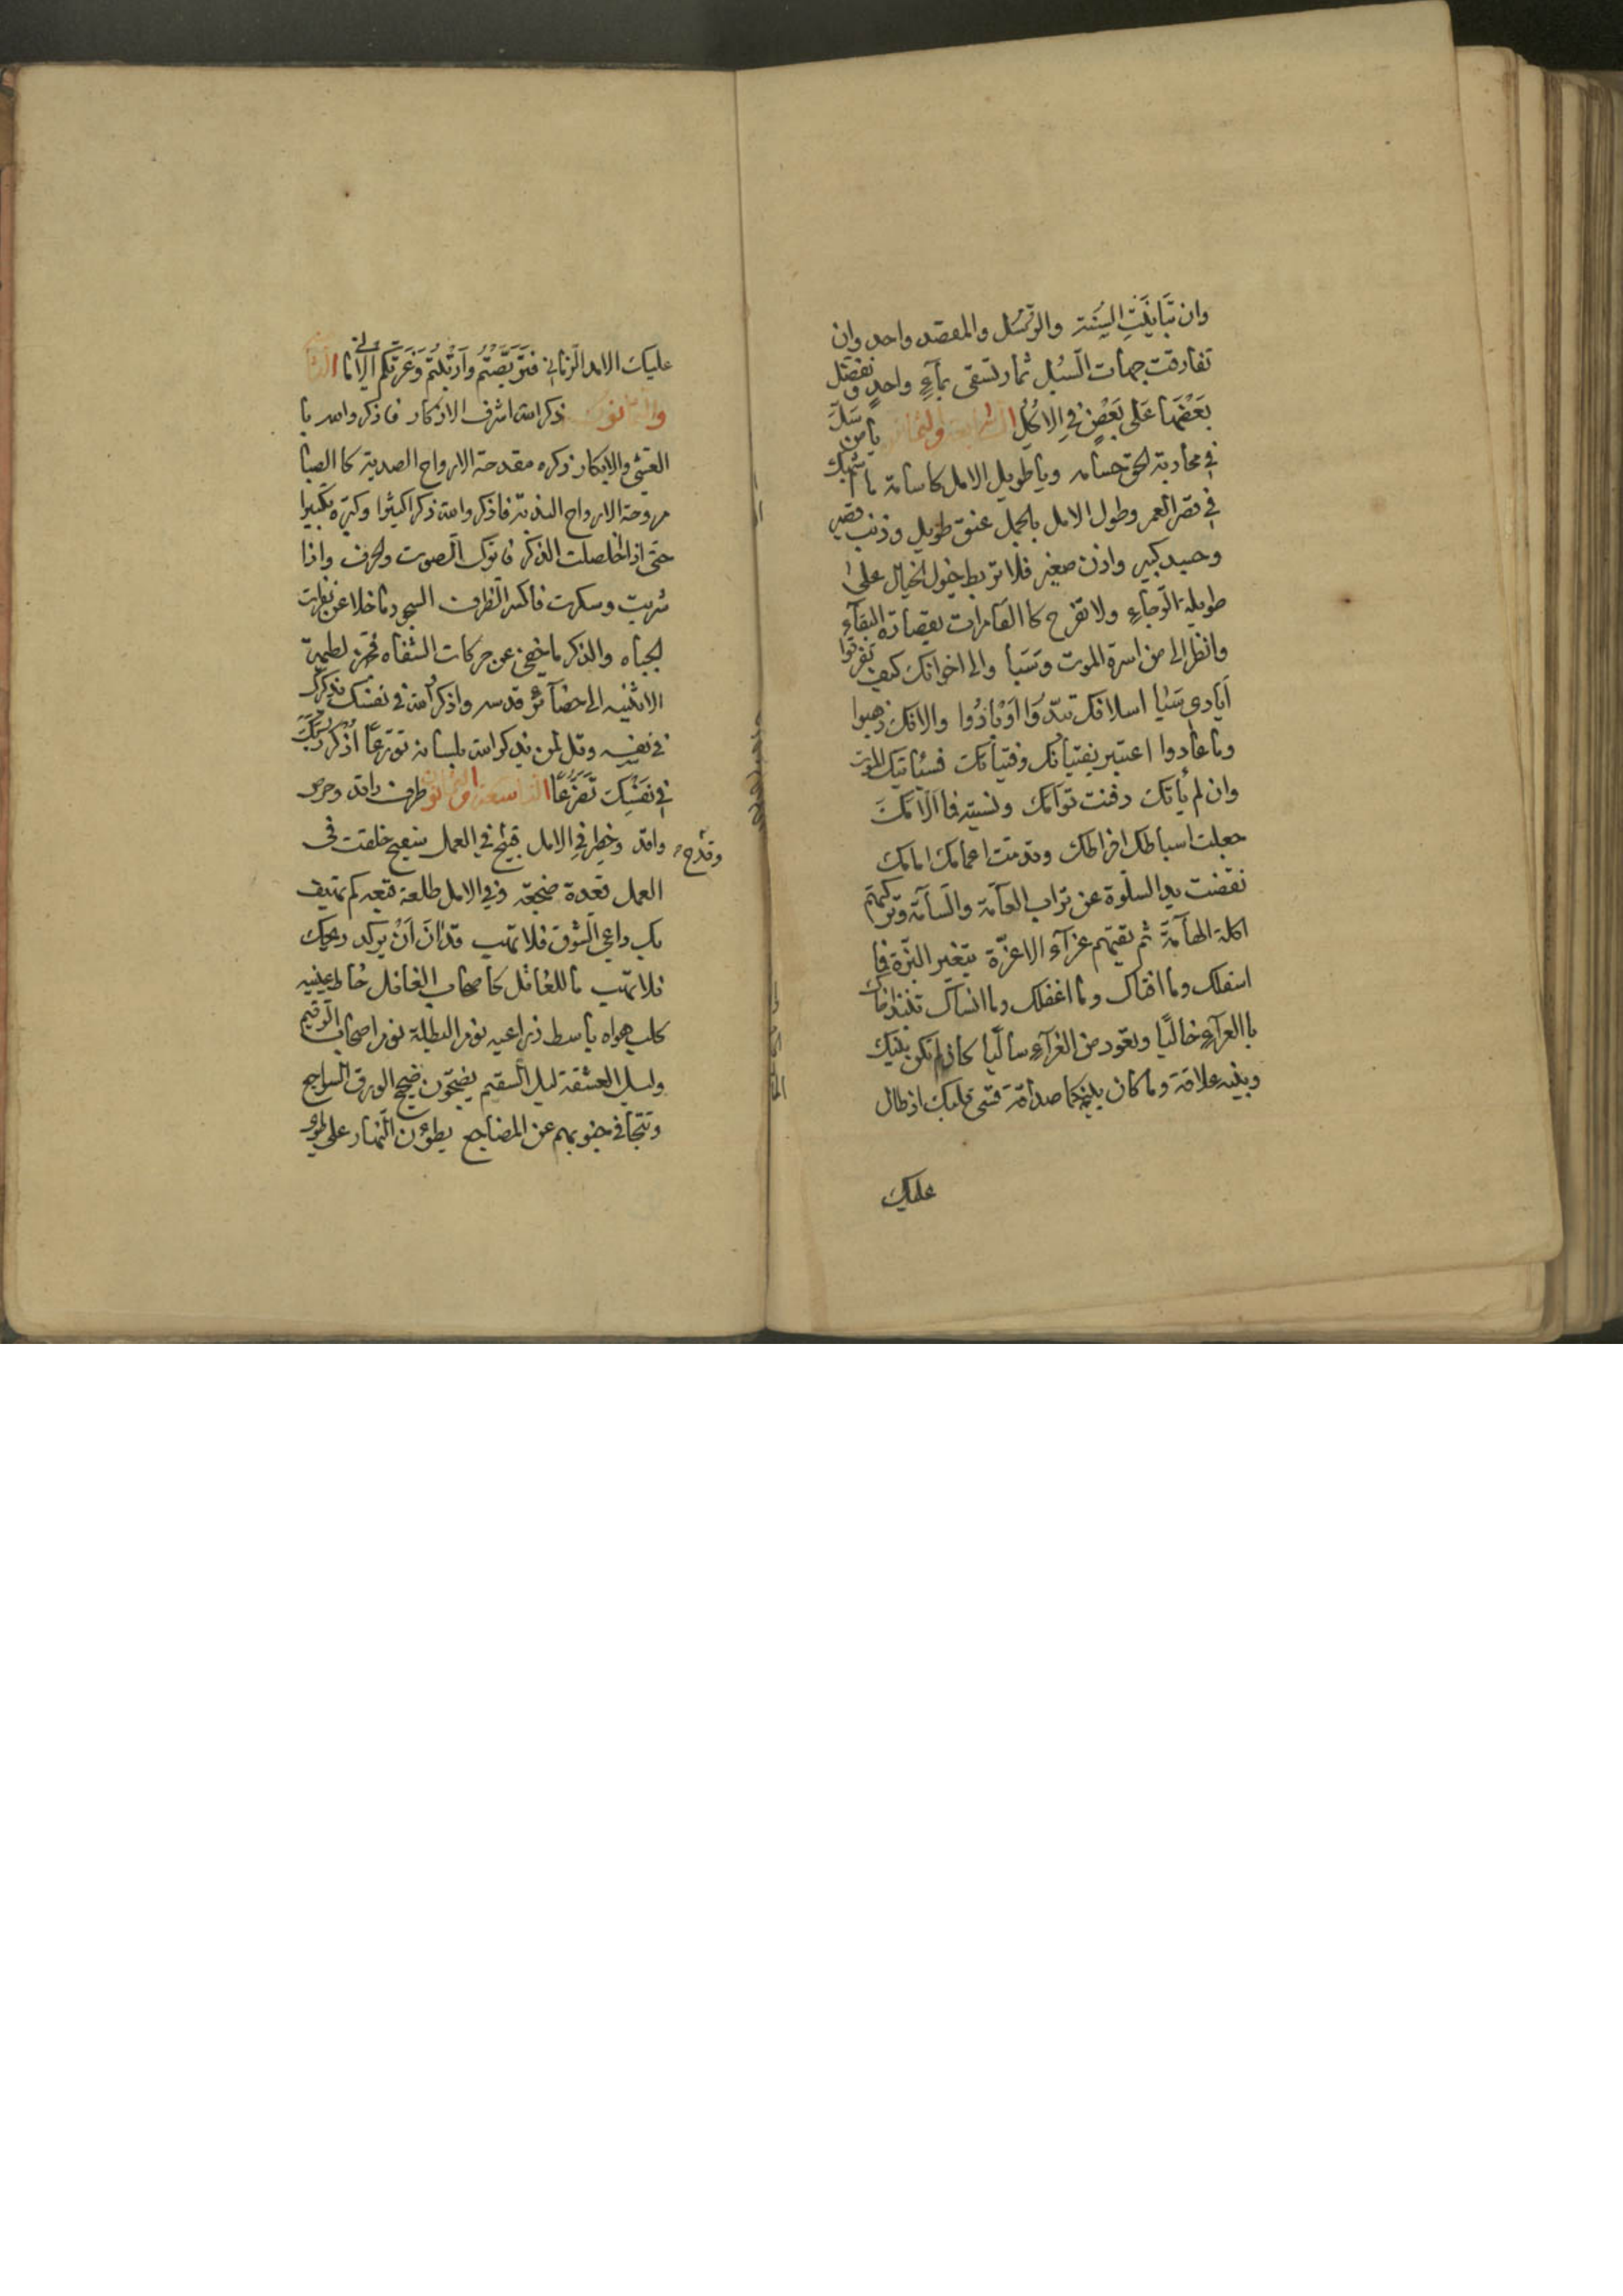 وان تباينت السنة والرسل والمقصد واحد وان
تفارقت جهات السبل ثمار تسقى بماء واحد ونفضل
بَعْضَهَا عَلَى بَعْضٍ فِي الاُكُلِ الرابعة والثمانون يا من سلّ
في محاربة الحق حسامه ويا طويل الامل كاسامة ما اشبهك
في قصر العمر وطول الامل بالجمل عنق طويل وذنب قصير
وجيد كبير واذن صغير فلا تربط خيول الخيال على
طويلة الرجاء ولا تفرح كالقامرات بقصارة البقاء
وانظر الى من اسرة الموت وسبا والى اخوانك كيف تفرقوا
أيادي سبا اسلافك تبددوا او بادوا والافك ذهبوا
وما عادوا اعتبر بفتيانك وفتياتك فسياتيك الموت
وان لم ياتك دفنت توأمك ونسيته فما ألأمك
جعلت اسباطك افراطك وقدمت اعمامك امامك
نفضت يد السلوة عن تراب العامّة والسآمة وتركتهم
اكلة الهامّة ثم تقيتهم عزاء الاعزّة بتغير البزّة فما
اسفلك وما اقساك وما اغفلك وما انساك تنبذ اخاك
بالعراء خاليا وتعود من العزاء ساليا كان لم تكن بينك
وبينه علاقة وما كان بينكما صداقة قسى قلبك اذ طال
عليك
عليك الامد الزماني فتربّصتم وارتبتم وغرّتكم الاماني الثامنة
والثمانون ذكر الله اشرف الاذكار فاذكروا الله بالـ
العشي والابكار ذكره مقدحة الارواح الصدية كما الصبا
مروحة الارواح الندية فاذكروا الله ذكرا كثيرا وكبّره تكبيرا
حتى اذا اخلصلت الذكر فاترك الصوت والحرف واذا
شربت وسكرت فاكسر الظرف السجود ما خلا عن نظرات
الجباه والذكر ما خفي عن حركات الشفاه
الاثنينه الى حضائر قدسه واذكر الله في نفسك يذكرك
في نفسه وقل لمن يذكر الله بلسانه تورّعا اُذكر ربّك
في نفسك تضرّعًا التاسعة والثمانون طرف راقد وحرص
واقد وخطر في الامل فسيح وفي العمل خلقت في
وقدح
العمل قعدة ضجعة وفي الامل طلعة كم يهتف
بك داعي الشوق فلا تهب قد آن ان يركد ريحك
فلا تهب ما للغافل كاصحاب الغافل خاط عينيه
كلب هواه باسط ذراعيه نوم البطلة نوم اصحاب الرقيم
وليل العشقة ليل السقيم يضجّون ضجيج الورق السواجع
وتتجافى جنوبهم عن المضاجع يطوون النهار على الطوى